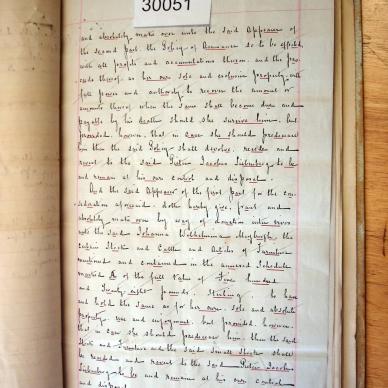 30051
and absolutely make over unto the said Appearer of
the second part, the Policy of Assurance so to be effected,
with all profits and accumulations thereon, and the pro-
ceeds thereof, as her own sole and exclusive property, with
full power and authority to recover the amount or
amounts thereof, when the same shall become due and
payable by his death should she survive him, but
provided, however, that in case she should predecease
him then the said Policy shall devolve, reside and
revert to the said Jacobus to be
and remain at his own control and disposal.
And the said Appearer of the first part for the con-
sideration aforesaid, doth hereby give, grant and
absolutely make over by way of donation inter vivos
unto the said Johanna Wilhelmina the
certain Stock and Cattle and Articles of Furniture
mentioned and contained in the annexed Schedule
marked A of the full value of Five hundred
and Twenty eight pounds, Sterling, to have
and hold the same as for her own sole and absolute
property, use and enjoyment, but provided, however,
that in case she should predecease him then the said
Stock and Furniture and the said Small Stock shall
be resided and revert to the said Jacobus
to be and remain at his own control
and disposal